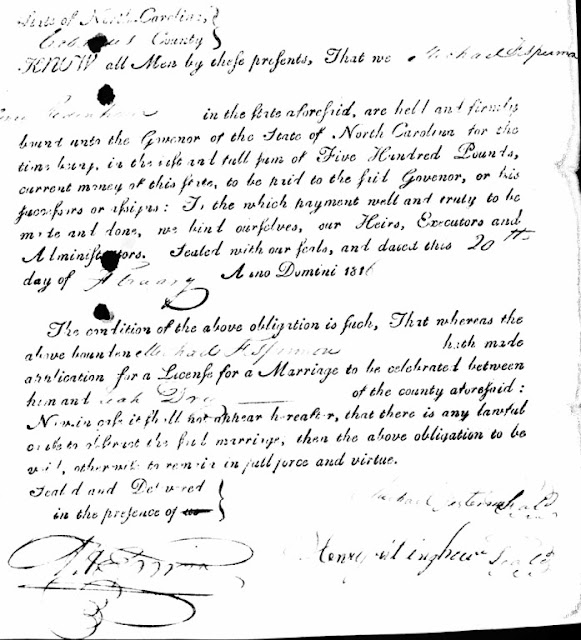 State of North Carolina,
County
KNOW all Men by these presents, That we Michael
in the state aforesaid, are held and firmly
bound unto the Govenor of the State of North Carolina for the
time being, in the just and full sum of Five Hundred Pounds,
current money of this state, to be paid to the said Govenor, or his
successors or assigns: To the which payment well and truly to be
made and done, we bind ourselves, our Heirs, Executors and
Administrators. Sealed with our seals, and dated this 20th
day of Anno Domini 1816
The condition of the above obligation is such, That whereas the
above bounden Michael hath made
application for a License for a Marriage to be celebrated between
him and Leah Dry of the county aforesaid:
Now in case it shall not appear hereafter, that there is any lawful
cause to obstruct the said marriage, then the above obligation to be
void, otherwise to remain in full force and virtue.
Seal'd and Delivered
in the presence of us
Michael Seal'd
Henry Seal'd